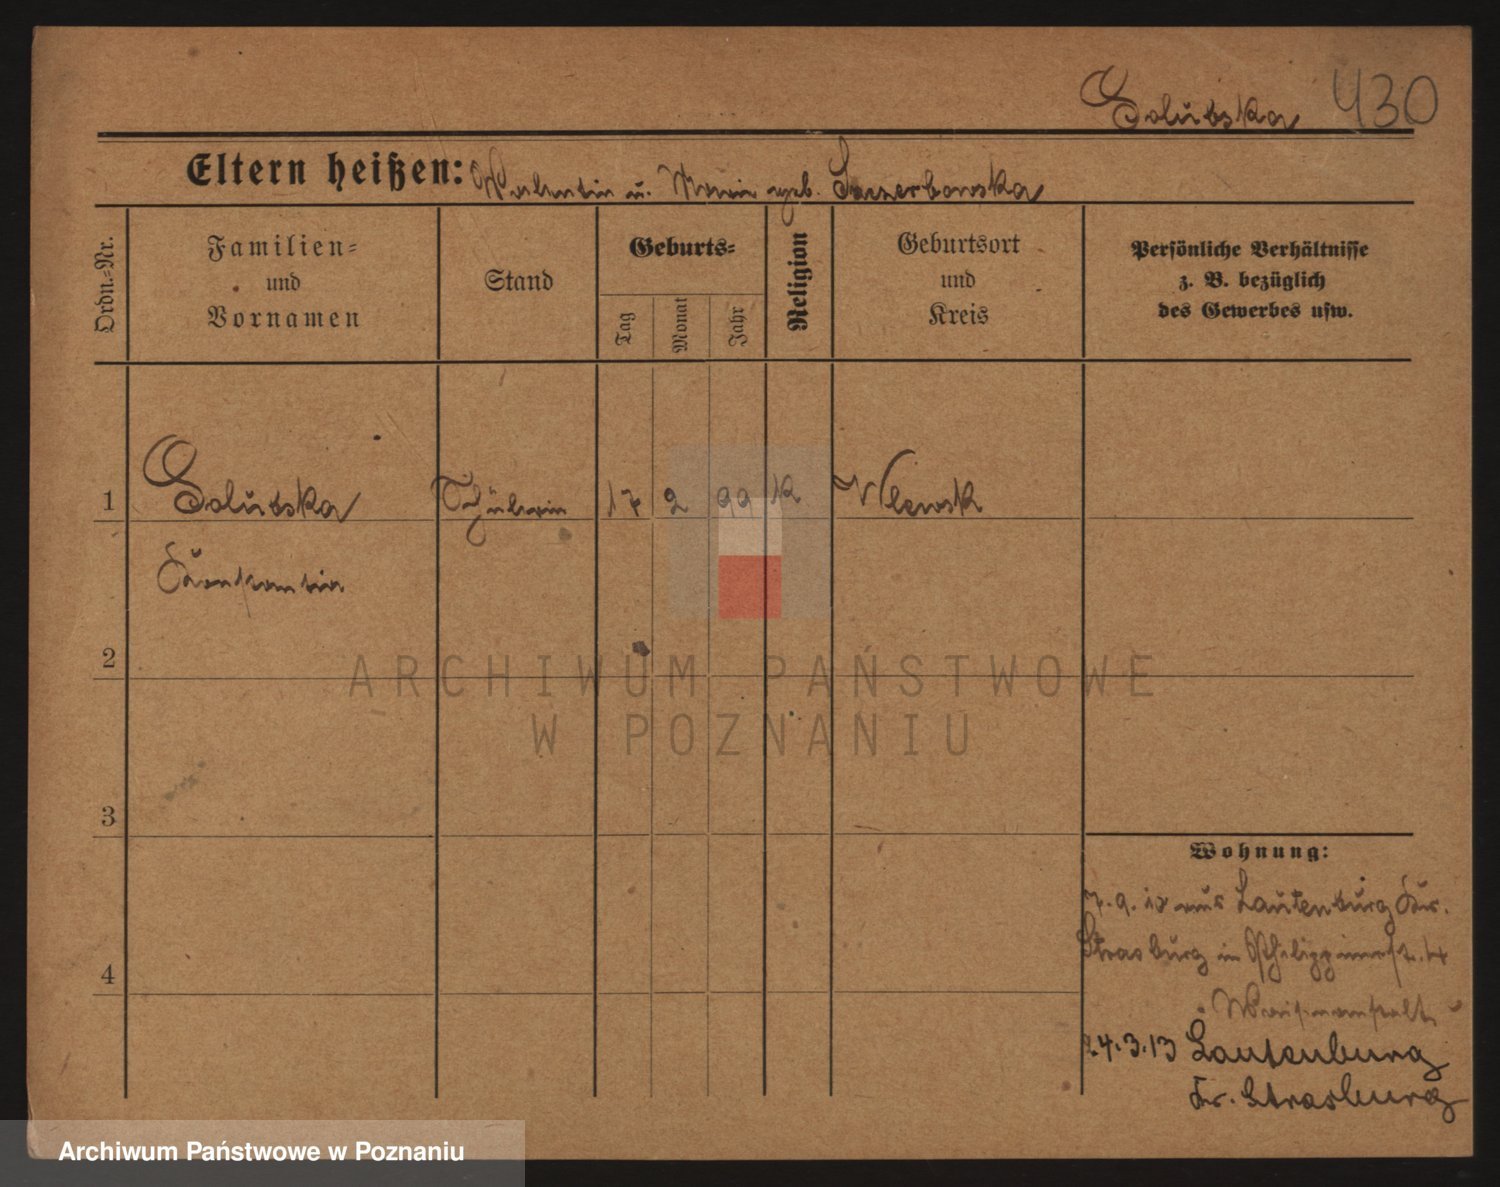 Golubska 430
Eltern heißen: Valentin u. Marie geb.
Ordn.-Nr.
Familien-
und
Vornamen
Stand
Geburts-
Tag
Monat
Jahr
Religion
Geburtsort
und
Kreis
Persönliche Verhältnisse
z. B. bezüglich
des Gewerbes usw.
1 Golubska Schülerin 17 2 99 k Wlewsk
Konstantia
2
ARCHIWUM PAŃSTWOWE
W POZNANIU
3
Wohnung:
7.9.12 aus Lautenburg Kr.
Strasburg in Philippinenstr. 4
Waisenanstalt
24.3.13 Lautenburg
4
Kr. Strasburg
Archiwum Państwowe w Poznaniu